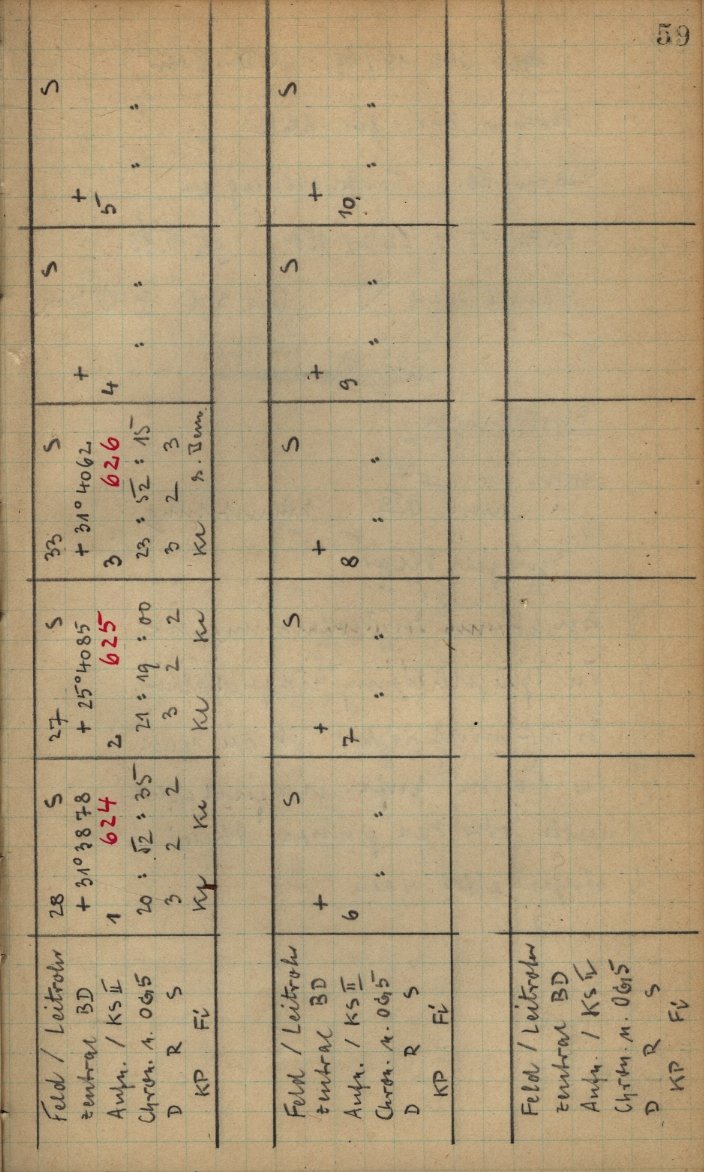 59
Feld / Leitrohr 28 S 27 S 33 S S S
zentral BD + 31° 3878 + 25° 4085 + 31° 4062 + +
Aufn. / KS II 1 624 2 625 3 626 4 5
Chron. n. 0615 20 : 52 : 35 21 : 19 : 00 23 : 52 : 15 : : : :
D R S 3 2 2 3 2 2 3 2 3
KP Fi Kr Kr Kr Kr Kr s. Bem.
Feld / Leitrohr S S S S S
zentral BD + + + + +
Aufn. / KS II 6 7 8 9 10.
Chron. n. 0615 : : : : : : : : : :
D R S
KP Fi
Feld / Leitrohr
zentral BD
Aufn. / KS II
Chron. n. 0615
D R S
KP Fi